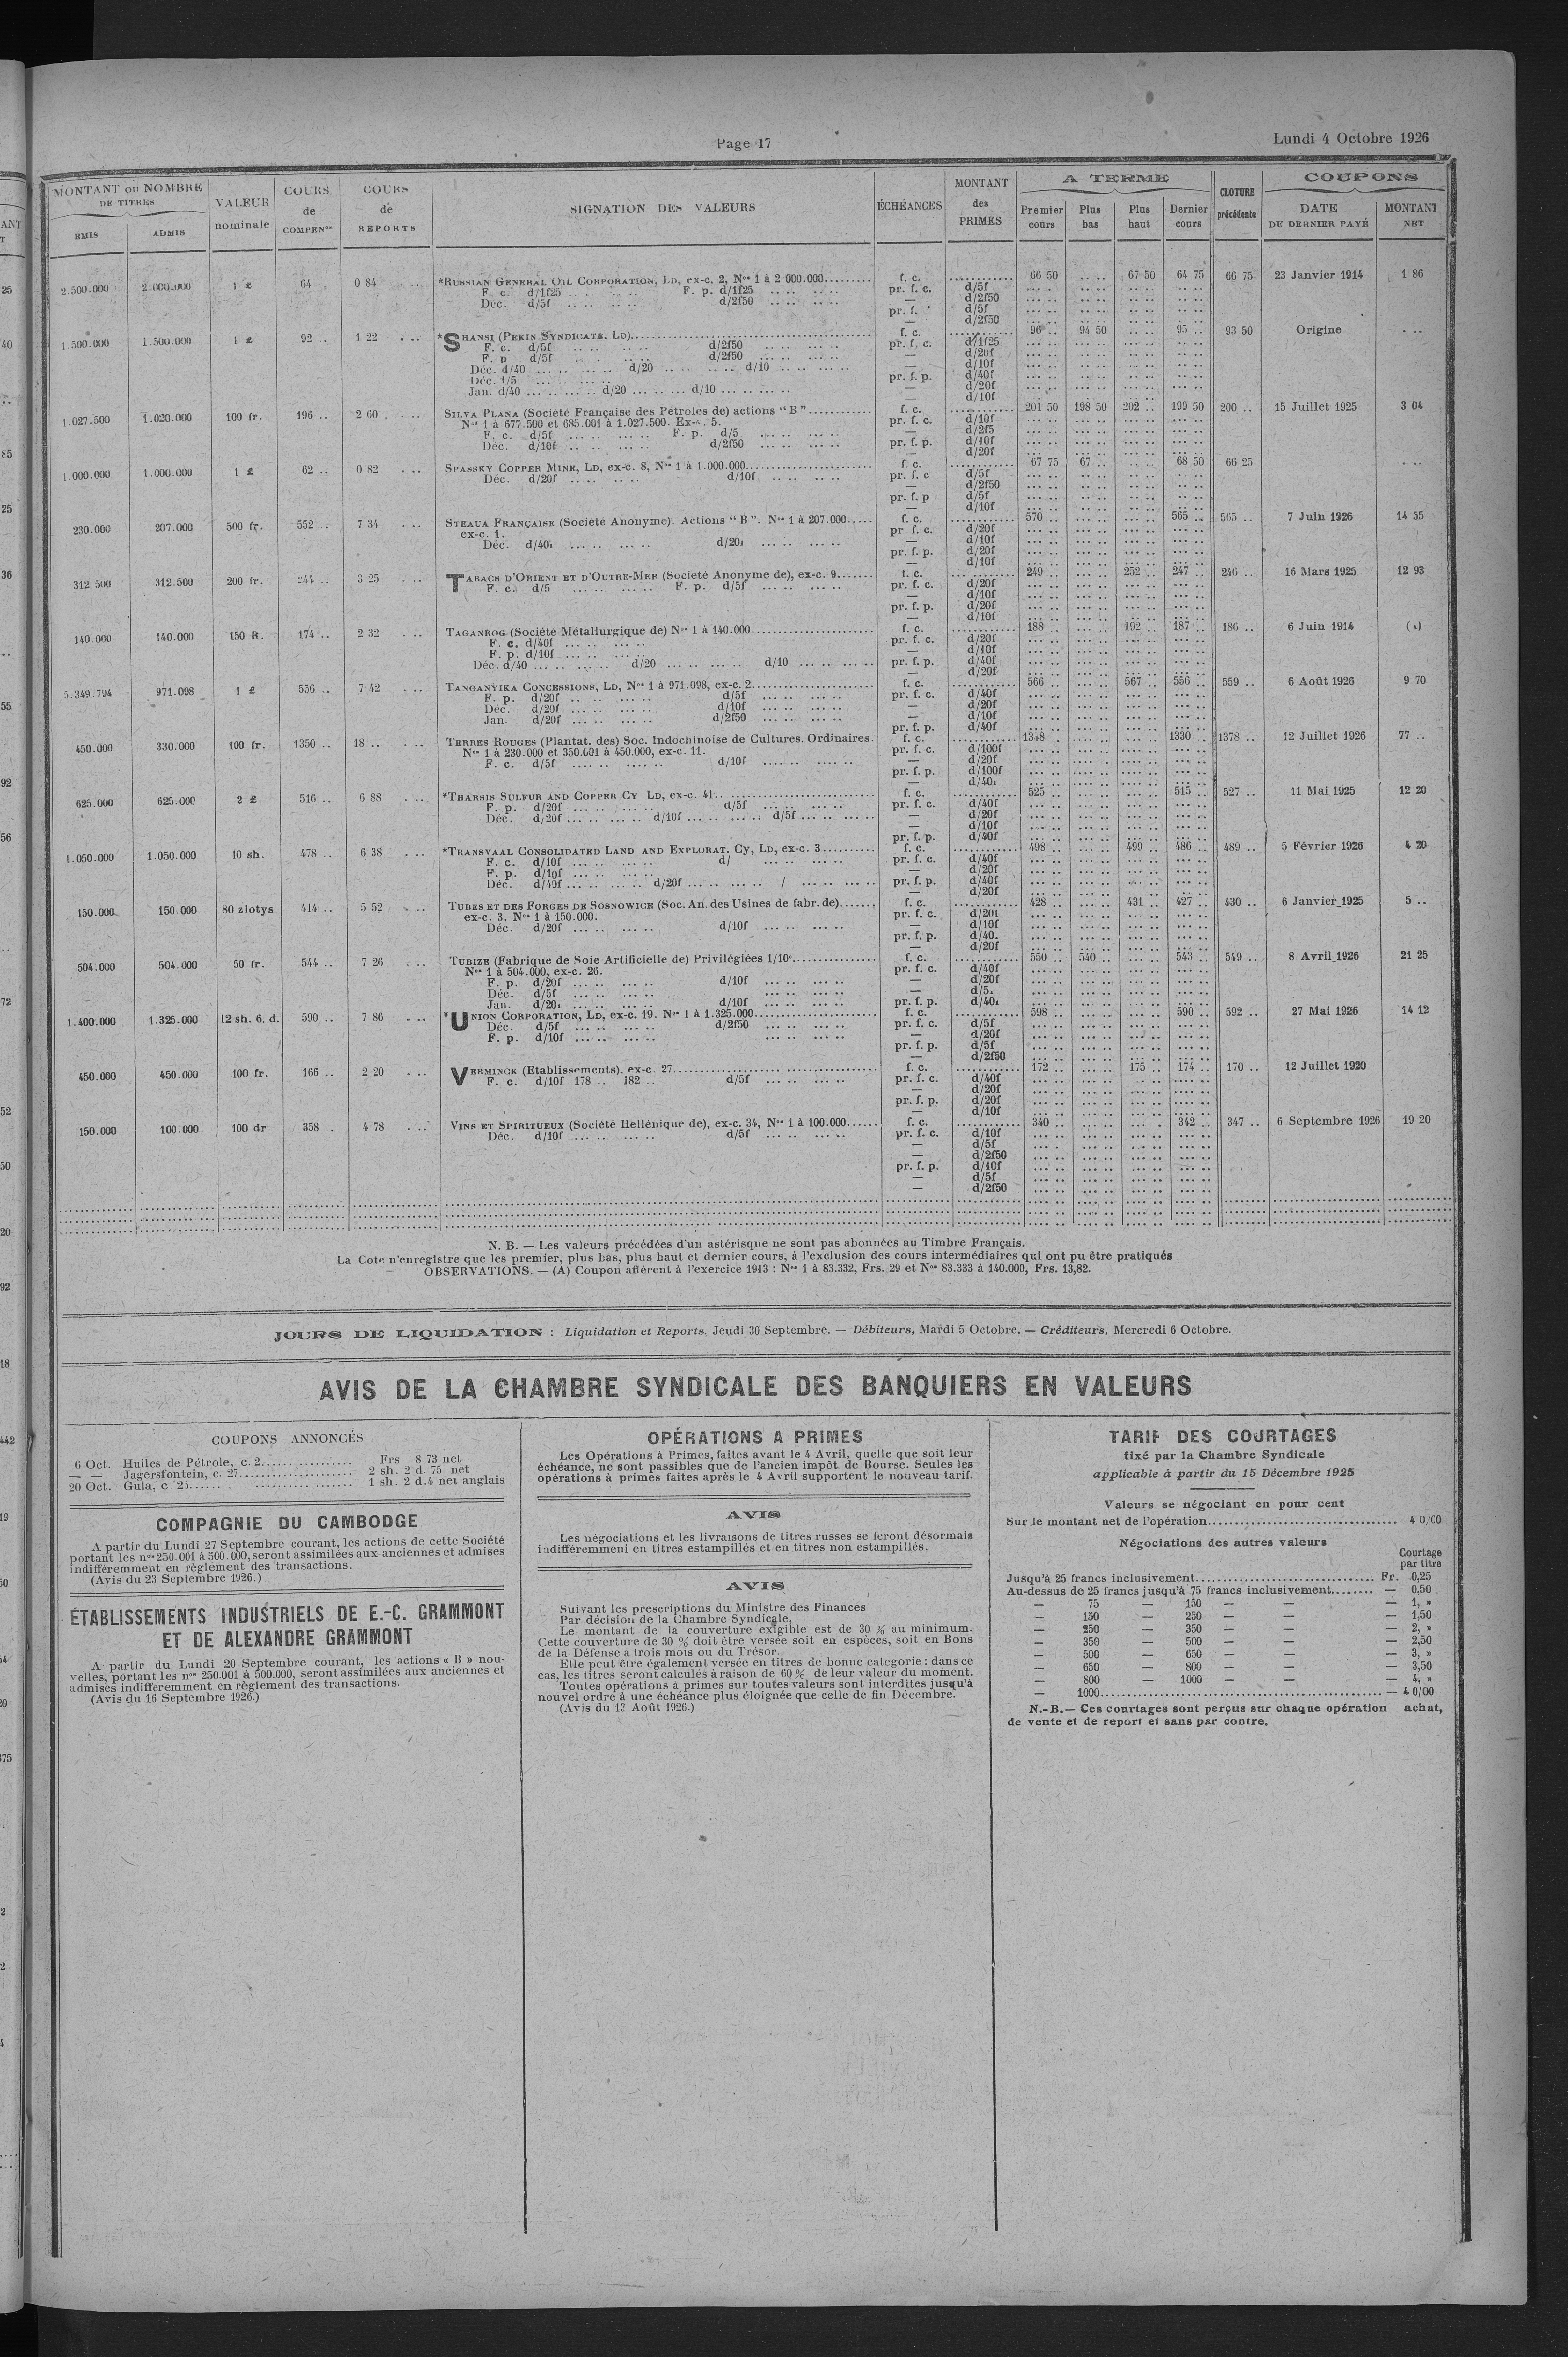 Page 17
Lundi 4 Octobre 1926
MONTANT OU NOMBRE DE TITRES
EMIS
ADMIS
VALEUR nominale
COURS de COMPENon
COURS de REPORTS
SIGNATION DES VALEURS
ÉCHÉANCES
MONTANT des PRIMES
A TERME
Premier cours
Plus bas
Plus haut
Dernier cours
CLOTURE précédente
COUPONS
DATE DU DERNIER PAYÉ
MONTANT NET
2.500.000 2.000.000 1 £ 64 0 84 *RUSSIAN GENERAL OIL CORPORATION, LD, ex-c. 2, Nos 1 à 2 000.000 f. c. 66 50 67 50 64 75 66 75 23 Janvier 1914 1 86
F. c. d/1f25 F. p. d/1f25 pr. f. c. d/5f
Déc. d/5f d/2f50 — d/2f50
pr. f. d/5f
— d/2f50
1.500.000 1.500.000 1 £ 92 .. 1 22 *SHANSI (PEKIN SYNDICATE, LD) f. c. 96 .. 94 50 95 .. 93 50 Origine
F. c. d/5f d/2f50 pr. f. c. d/1f25
F. p d/5f d/2f50 — d/20f
Déc. d/40 d/20 d/10 — d/10f
Déc. 1/5 pr. f. p. d/40f
Jan. d/40 d/20 d/10 — d/20f
— d/10f
1.027.500 1.020.000 100 fr. 196 .. 2 60 SILVA PLANA (Société Française des Pétroles de) actions "B" f. c. 201 50 198 50 202 .. 199 50 200 .. 15 Juillet 1925 3 04
Nos 1 à 677.500 et 685.001 à 1.027.500. Ex-c. 5. pr. f. c. d/10f
F. c. d/5f F. p. d/5 — d/2f5
Déc. d/10f d/2f50 pr. f. p. d/10f
— d/20f
1.000.000 1.000.000 1 £ 62 .. 0 82 SPASSKY COPPER MINE, LD, ex-c. 8, Nos 1 à 1.000.000 f. c. 67 75 67 .. 68 50 66 25
Déc. d/20f d/10f pr. f. c d/5f
— d/2f50
pr. f. p d/5f
— d/10f
230.000 207.000 500 fr. 552 .. 7 34 STEAUA FRANÇAISE (Société Anonyme). Actions "B". Nos 1 à 207.000 f. c. 570 .. 565 .. 565 .. 7 Juin 1926 14 35
ex-c. 1. pr f. c. d/20f
Déc. d/40f d/20f — d/10f
pr. f. p. d/20f
— d/10f
312 500 312.500 200 fr. 244 .. 3 25 TABACS D'ORIENT ET D'OUTRE-MER (Société Anonyme de), ex-c. 9 f. c. 249 .. 252 .. 247 .. 246 .. 16 Mars 1925 12 93
F. c. d/5 F. p. d/5f pr. f. c. d/20f
— d/10f
pr. f. p. d/20f
— d/10f
140.000 140.000 150 R. 174 .. 2 32 TAGANROG (Société Métallurgique de) Nos 1 à 140.000 f. c. 188 .. 192 .. 187 .. 186 .. 6 Juin 1914
F. c. d/40f pr. f. c. d/20f
F. p. d/10f — d/10f
Déc. d/40 d/20 d/10 pr. f. p. d/40f
— d/20f
5.349.794 971.098 1 £ 556 .. 7 42 TANGANYIKA CONCESSIONS, LD, Nos 1 à 971.098, ex-c. 2 f. c. 566 .. 567 .. 556 .. 559 .. 6 Août 1926 9 70
F. p. d/20f d/5f pr. f. c. d/40f
Déc. d/20f d/10f — d/20f
Jan. d/20f d/2f50 — d/10f
pr. f. p. d/40f
450.000 330.000 100 fr. 1350 .. 18 .. TERRES ROUGES (Plantat. des) Soc. Indochinoise de Cultures. Ordinaires. f. c. 1348 .. 1330 .. 1378 .. 12 Juillet 1926 77 ..
Nos 1 à 230.000 et 350.001 à 450.000, ex-c. 11. pr. f. c. d/100f
F. c. d/5f d/10f — d/20f
pr. f. p. d/100f
— d/40f
625.000 625.000 2 £ 516 .. 6 88 *THARSIS SULFUR AND COPPER CY LD, ex-c. 41 f. c. 525 .. 515 .. 527 .. 11 Mai 1925 12 20
F. p. d/20f d/5f pr. f. c. d/40f
Déc. d/20f d/10f d/5f — d/20f
— d/10f
pr. f. p. d/40f
1.050.000 1.050.000 10 sh. 478 .. 6 38 *TRANSVAAL CONSOLIDATED LAND AND EXPLORAT. Cy, LD, ex-c. 3 f. c. 498 .. 499 .. 486 .. 489 .. 5 Février 1926 4 20
F. c. d/10f d/ pr. f. c. d/40f
F. p. d/10f — d/20f
Déc. d/40f d/20f / pr. f. p. d/40f
— d/20f
150.000 150.000 80 zlotys 414 .. 5 52 TUBES ET DES FORGES DE SOSNOWICE (Soc. An. des Usines de fabr. de) f. c. 428 .. 431 .. 427 .. 430 .. 6 Janvier 1925 5 ..
ex-c. 3. Nos 1 à 150.000. pr. f. c. d/20f
Déc. d/20f d/10f — d/10f
pr. f. p. d/40.
— d/20f
504.000 504.000 50 fr. 544 .. 7 26 TUBIZE (Fabrique de Soie Artificielle de) Privilégiées 1/10e f. c. 550 .. 540 .. 543 .. 549 .. 8 Avril 1926 21 25
Nos 1 à 504.000, ex-c. 26. pr. f. c. d/40f
F. p. d/20f d/10f — d/20f
Déc. d/5f — d/5.
Jan. d/20f d/10f pr. f. p. d/40f
1.400.000 1.325.000 12 sh. 6. d. 590 .. 7 86 *UNION CORPORATION, LD, ex-c. 19. Nos 1 à 1.325.000 f. c. 598 .. 590 .. 592 .. 27 Mai 1926 14 12
Déc. d/5f d/2f50 pr. f. c. d/5f
F. p. d/10f — d/20f
pr. f. p. d/5f
— d/2f50
450.000 450.000 100 fr. 166 .. 2 20 VERMINCK (Etablissements), ex-c. 27 f. c. 172 .. 175 .. 174 .. 170 .. 12 Juillet 1920
F. c. d/10f 178 .. 182 .. d/5f pr. f. c. d/40f
— d/20f
pr. f. p. d/20f
— d/10f
150.000 100.000 100 dr 358 .. 4 78 VINS ET SPIRITUEUX (Société Hellénique de), ex-c. 34, Nos 1 à 100.000 f. c. 340 .. 342 .. 347 .. 6 Septembre 1926 19 20
Déc. d/10f d/5f pr. f. c. d/10f
— d/5f
— d/2f50
pr. f. p. d/10f
— d/5f
— d/2f50
N. B. — Les valeurs précédées d'un astérisque ne sont pas abonnées au Timbre Français.
La Cote n'enregistre que les premier, plus bas, plus haut et dernier cours, à l'exclusion des cours intermédiaires qui ont pu être pratiqués
OBSERVATIONS. — (A) Coupon afférent à l'exercice 1913 : Nos 1 à 83.332, Frs. 29 et Nos 83.333 à 140.000, Frs. 13,82.
JOURS DE LIQUIDATION : Liquidation et Reports. Jeudi 30 Septembre. — Débiteurs, Mardi 5 Octobre. — Créditeurs, Mercredi 6 Octobre.
AVIS DE LA CHAMBRE SYNDICALE DES BANQUIERS EN VALEURS
COUPONS ANNONCÉS
6 Oct. Huiles de Pétrole, c. 2 Frs 8 73 net
— — Jagersfontein, c. 27 2 sh. 2 d. 75 net
20 Oct. Gula, c 25 1 sh. 2 d.4 net anglais
COMPAGNIE DU CAMBODGE
A partir du Lundi 27 Septembre courant, les actions de cette Société
portant les nos 250.001 à 500.000, seront assimilées aux anciennes et admises
indifféremment en règlement des transactions.
(Avis du 23 Septembre 1926.)
ÉTABLISSEMENTS INDUSTRIELS DE E.-C. GRAMMONT
ET DE ALEXANDRE GRAMMONT
A partir du Lundi 20 Septembre courant, les actions « B » nou-
velles, portant les nos 250.001 à 500.000, seront assimilées aux anciennes et
admises indifféremment en règlement des transactions.
(Avis du 16 Septembre 1926.)
OPÉRATIONS A PRIMES
Les Opérations à Primes, faites avant le 4 Avril, quelle que soit leur
échéance, ne sont passibles que de l'ancien impôt de Bourse. Seules les
opérations à primes faites après le 4 Avril supportent le nouveau tarif.
AVIS
Les négociations et les livraisons de titres russes se feront désormais
indifféremment en titres estampillés et en titres non estampillés.
AVIS
Suivant les prescriptions du Ministre des Finances
Par décision de la Chambre Syndicale,
Le montant de la couverture exigible est de 30 % au minimum.
Cette couverture de 30 % doit être versée soit en espèces, soit en Bons
de la Défense à trois mois ou du Trésor.
Elle peut être également versée en titres de bonne categorie : dans ce
cas, les titres seront calculés à raison de 60 % de leur valeur du moment.
Toutes opérations à primes sur toutes valeurs sont interdites jusqu'à
nouvel ordre à une échéance plus éloignée que celle de fin Décembre.
(Avis du 13 Août 1926.)
TARIF DES COURTAGES
fixé par la Chambre Syndicale
applicable à partir du 15 Décembre 1925
Valeurs se négociant en pour cent
Sur le montant net de l'opération 4 0/00
Négociations des autres valeurs
Courtage par titre
Jusqu'à 25 francs inclusivement Fr. 0,25
Au-dessus de 25 francs jusqu'à 75 francs inclusivement — 0,50
— 75 — 150 — — — 1, »
— 150 — 250 — — — 1,50
— 250 — 350 — — — 2, »
— 350 — 500 — — — 2,50
— 500 — 650 — — — 3, »
— 650 — 800 — — — 3,50
— 800 — 1000 — — — 4, »
— 1000 — 4 0/00
N.-B.— Ces courtages sont perçus sur chaque opération achat,
de vente et de report et sans par contre.